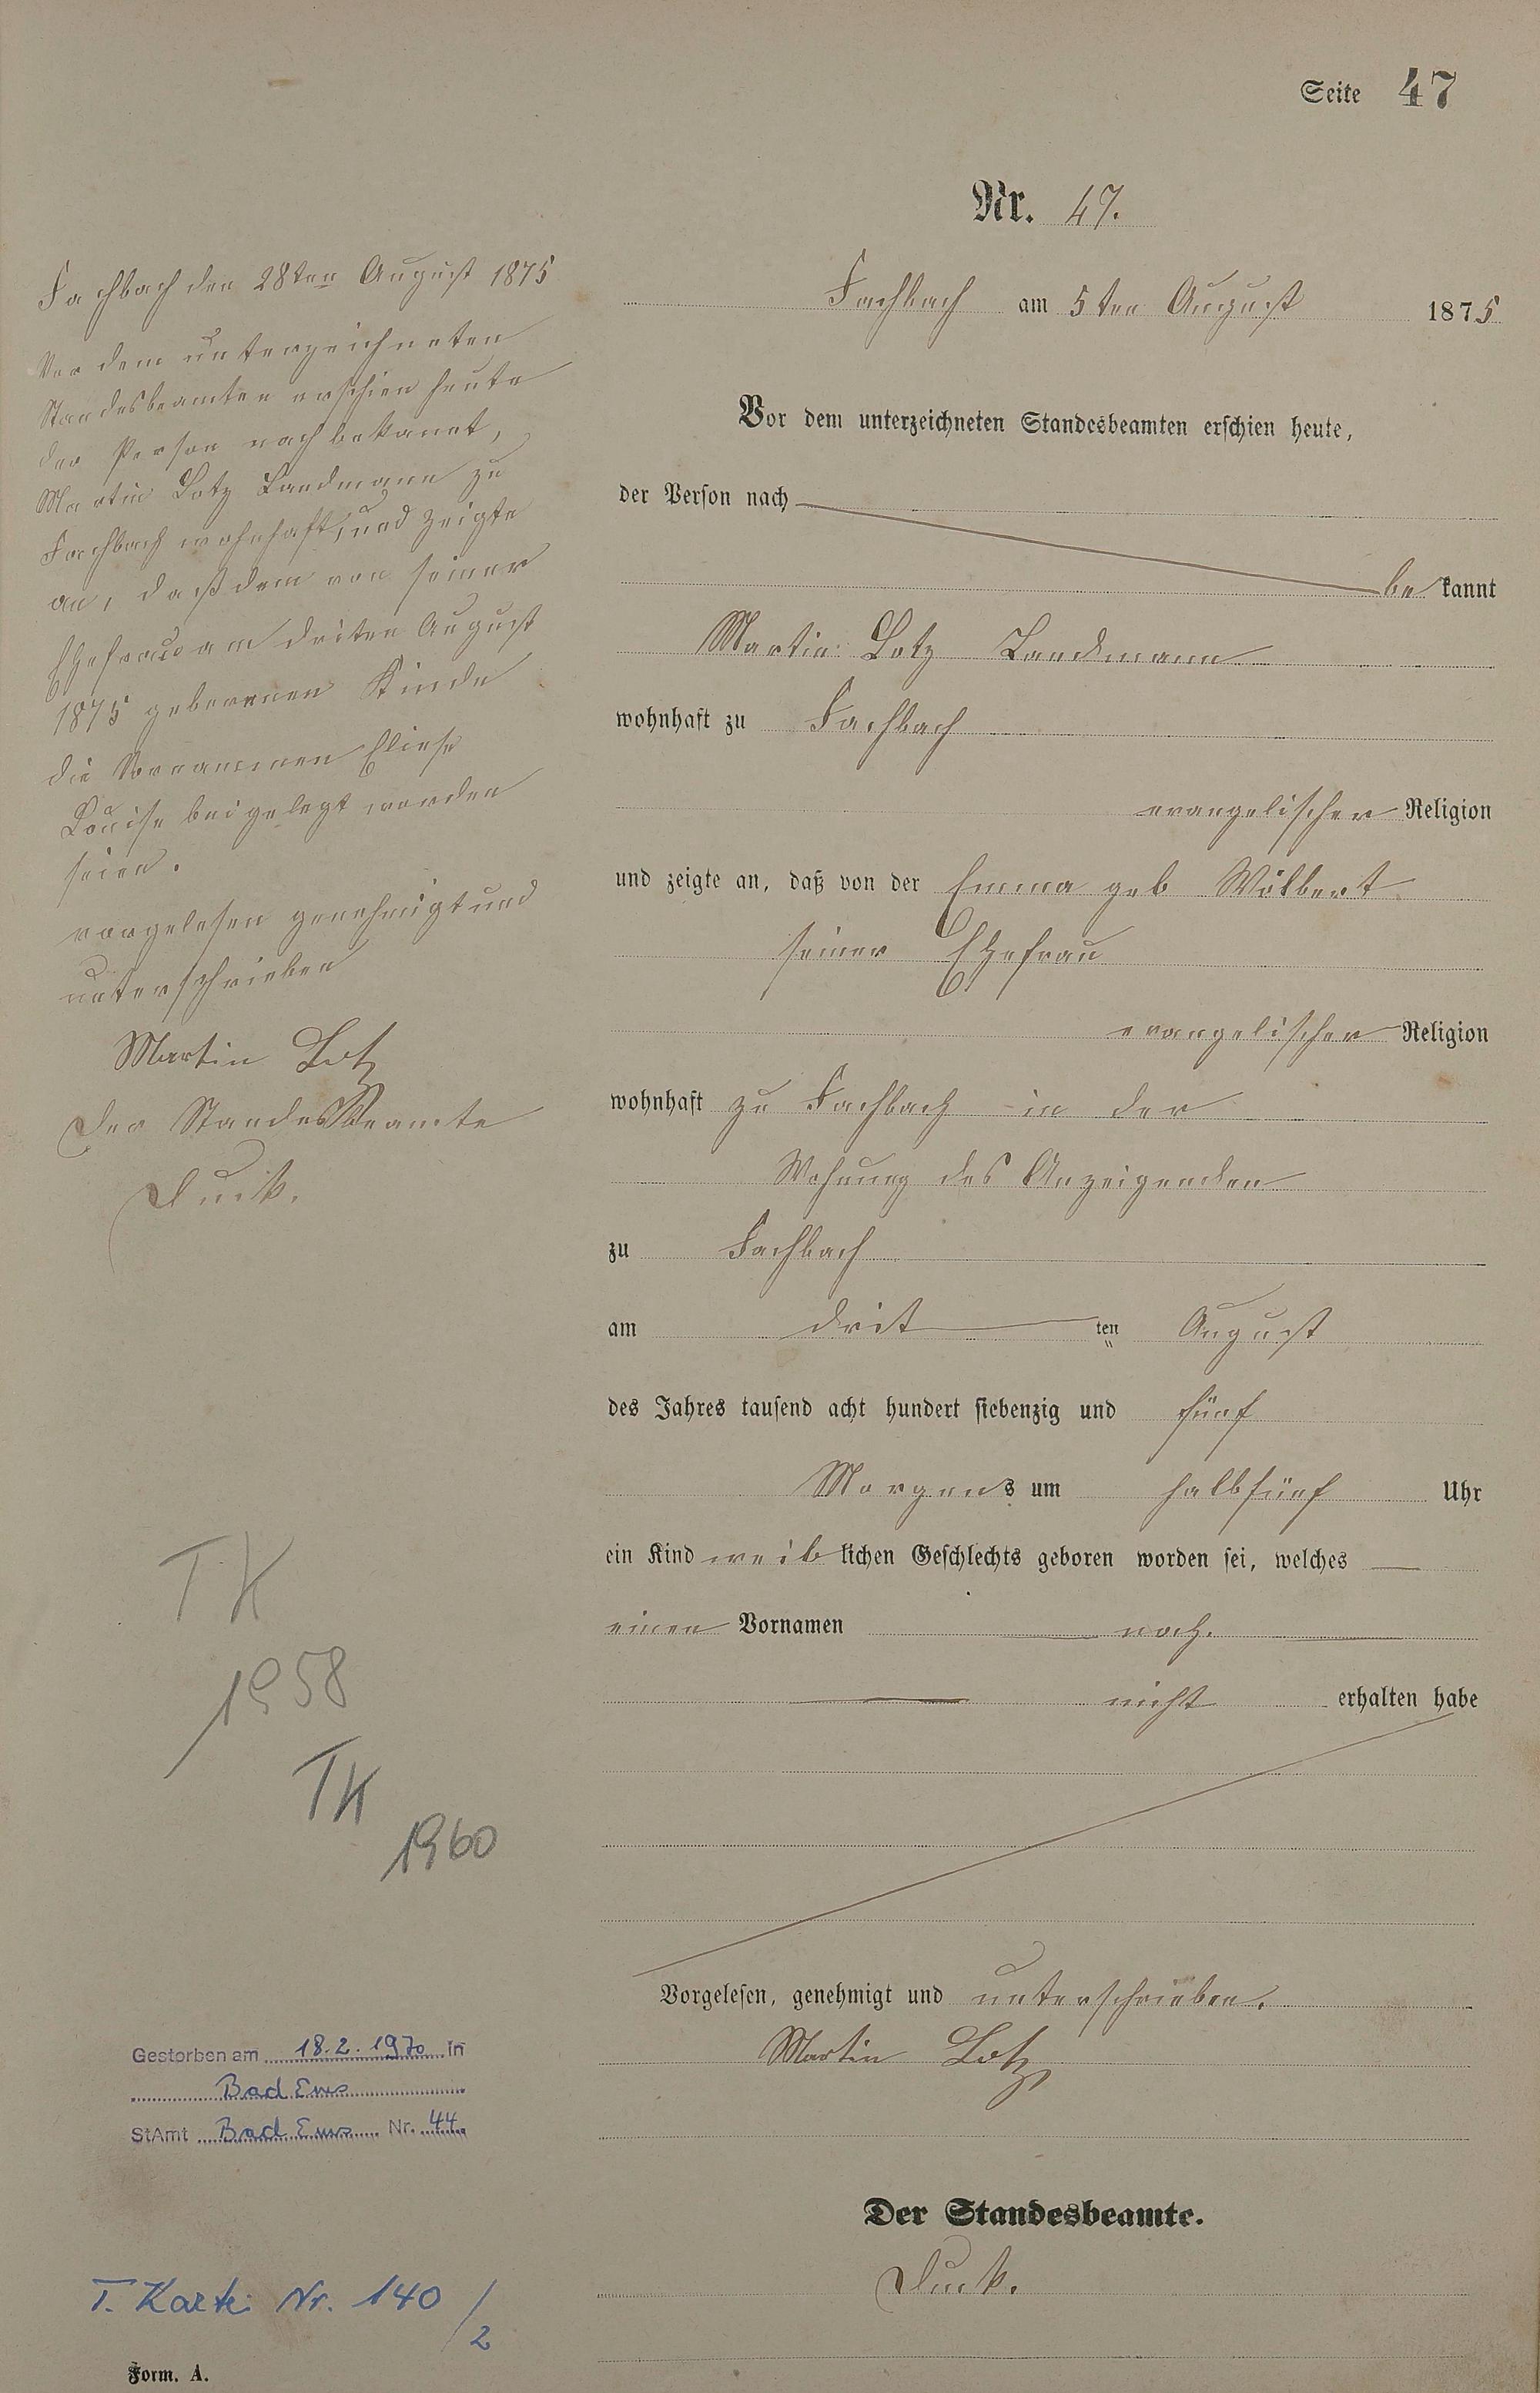 Seite 47
Nr. 47.
Fachbach am 5ten August 1875
Vor dem unterzeichneten Standesbeamten erschien heute,
der Person nach
be kannt
Martin Lotz Landmann
wohnhaft zu Fachbach
evangelischer Religion
und zeigte an, daß von der Emma geb Wölbert
seiner Ehefrau
evangelischer Religion
wohnhaft zu Fachbach in der
Wohnung des Anzeigenden
zu Fachbach
am drit ten August
des Jahres tausend acht hundert siebenzig und fünf
Morgens um halbfünf Uhr
ein Kind weiblichen Geschlechts geboren worden sei, welches
einen Vornamen noch
nicht erhalten habe
Vorgelesen, genehmigt und unterschrieben.
Martin Lotz
Der Standesbeamte.
Fachbach den 28ten August 1875
Vor dem unterzeichneten
Standesbeamten erschien heute
der Person nach bekannt,
Martin Lotz Landmann zu
Fachbach wohnhaft, und zeigte
an, daß dem von seiner
Ehefrau am driten August
1875 geborenen Kinde
die Vornammen Eliese
Louise beigelegt worden
seien.
vorgelesen genehmigt und
unterschrieben
Martin Lotz
Der Standesbeamte
TK
1958
TK
1960
Gestorben am 18.2.1970 in
Bad Ems
StAmt Bad Ems Nr. 44
T. Karte Nr. 140/2
Form. A.